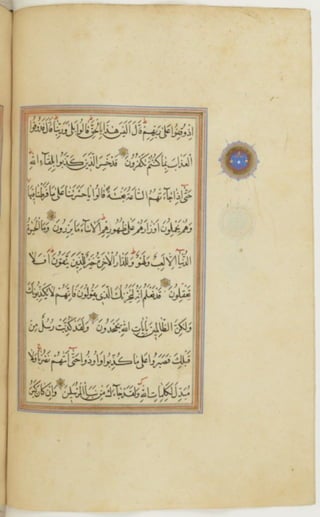 اذ وقفوا على ربهم قال اليس هذا بالحق قالوا بلى وربنا قال فذوقوا
العذاب بما كنتم تكفرون قد خسر الذين كذبوا بلقاء الله
حتى اذا جاءتهم الساعة بغتة قالوا يا حسرتنا على ما فرطنا فيها
وهم يحملون اوزارهم على ظهورهم الا ساء ما يزرون وما الحيوة
الدنيا الا لعب ولهو وللدار الاخرة خير للذين يتقون افلا
تعقلون قد نعلم انه ليحزنك الذى يقولون فانهم لا يكذبونك
ولكن الظالمين بايات الله يجحدون ولقد كذبت رسل من
قبلك فصبروا على ما كذبوا واوذوا حتى اتيهم نصرنا ولا
مبدل لكلمات الله ولقد جاءك من نبا المرسلين وان كان كبر